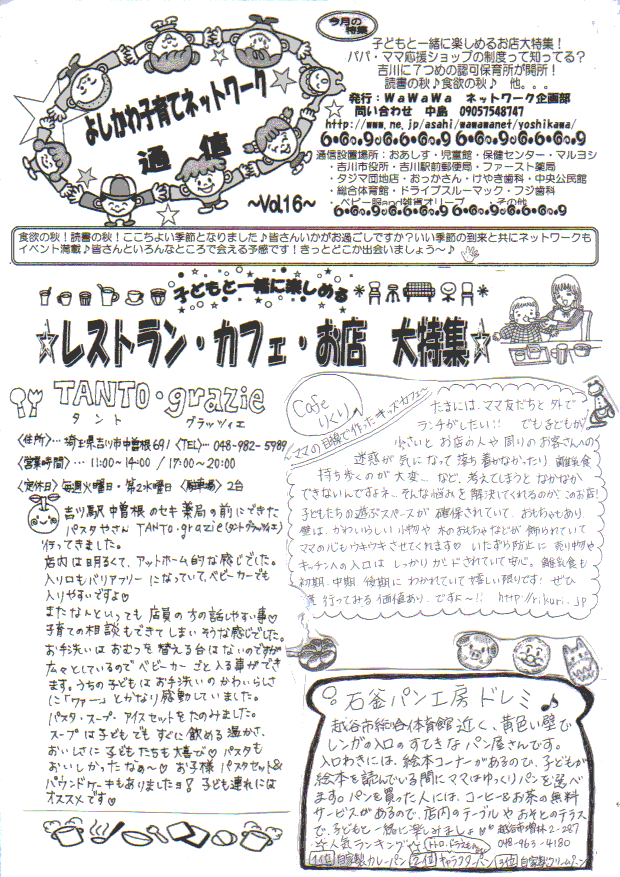 よしかわ子育てネットワーク
通信
～Vol.16～
今月の特集
子どもと一緒に楽しめるお店大特集！
パパ・ママ応援ショップの制度って知ってる？
吉川に７つめの認可保育所が開所！
読書の秋♪食欲の秋♪　他。。。
発行：ＷａＷａＷａ　ネットワーク企画部
問い合わせ　中島　09057548747
http://www.ne.jp/asahi/wawawanet/yoshikawa/
通信設置場所：おあしす・児童館・保健センター・マルヨシ
・吉川市役所・吉川駅前郵便局・ファースト薬局
・タジマ団地店・おっかさん・けやき歯科・中央公民館
・総合体育館・ドライブスルーマック・フジ歯科
・ベビー服and雑貨オリーブ　・・・その他
食欲の秋！読書の秋！ここちよい季節となりました♪皆さんいかがお過ごしですか？いい季節の到来と共にネットワークも
イベント満載♪皆さんといろんなところで会える予感です！きっとどこか出会いましょう～♪
子どもと一緒に楽しめる
☆レストラン・カフェ・お店　大特集☆
TANTO・grazie
タント　グラッツィエ
〈住所〉… 埼玉県吉川市中曽根691 〈TEL〉… 048-982-5989
〈営業時間〉… 11:00～14:00 / 17:00～20:00
〈定休日〉毎週火曜日・第2水曜日 〈駐車場〉2台
吉川駅中曽根のセキ薬局の前にできた
パスタやさん TANTO・grazie(タントグラッツィエ)
行ってきました。
店内は明るくて、アットホーム的な感じでした。
入り口もバリアフリーになっていて、ベビーカーでも
入りやすいですよ♡
またなんといっても 店員の方の話しやすい事♡
子育ての相談もできてしまいそうな感じでした。
お手洗いはおむつを替える台はないのですが
広々としているのでベビーカーごと入る事ができ
ます。うちの子どもはお手洗いのかわいらしさ
に「ワァー」とかなり感動していました。
パスタ・スープ・アイスセットをたのみました。
スープは子どもでもすぐに飲める温かさ、
おいしさに子どもたちも大喜び♡ パスタも
おいしかったなぁ～♡ お子様パスタセット&
パウンドケーキもありましたヨ！子ども連れには
オススメです♡
Cafe りくり
ママの目線で作ったキッズカフェ
たまには、ママ友だちと外で
ランチがしたい!! でも子どもが
小さいとお店の人や周りのお客さんへの
迷惑が気になって落ち着かなかったり 離乳食
持ち歩くのが大変… など、考えてしまうとなかなか
できないんですよネ。そんな悩みを解決してくれるのが、このお店！
子どもたちの遊ぶスペースが確保されていて、おもちゃもあり、
壁は、かわいらしい小物や木のおもちゃなどが飾られていて
ママの心もウキウキさせてくれます♡ いたずら防止に売り物や
キッチンへの入口はしっかりガードされていて安心。離乳食も
初期、中期、後期にわかれていて嬉しい限りです！ぜひ
一度行ってみる価値あり、ですよ～!! http://rikuri.jp
石釜パン工房 ドレミ♪
越谷市総合体育館近く、黄色い壁で
レンガの入口のすてきなパン屋さんです。
入口わきには、絵本コーナーがあるので、子どもが
絵本を読んでいる間にママはゆっくりパンを選べ
ます。パンを買った人には、コーヒー&お茶の無料
サービスがあるので、店内のテーブルやおそとのテラス
で、子どもと一緒に楽しみましょ♥ 越谷市増林2-287
048-963-4180
☆人気ランキング☆ トトロ、ドラえもん
1位 自家製カレーパン 2位 キャラクターパン 3位 自家製クリームパン